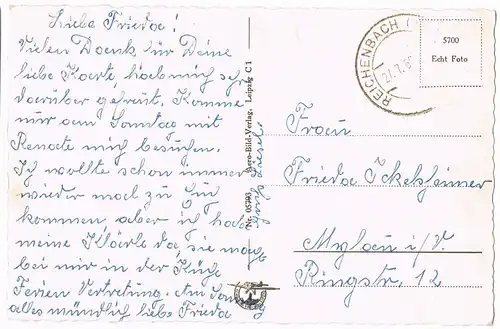 Liebe Frieda!
Vielen Dank für Deine
liebe Karte hab mich sehr
darüber gefreut. Komme
nur am Sonntag mit
Renate mich besuchen.
Ich wollte schon immer
wieder mal zu Euch
kommen aber ich habe
meine Klärle da, sie macht
bei mir in der Küche
Ferien Vertretung. Am Sonntag
alles mündlich liebe Frieda
Nr. 05793 Bero-Bild-Verlag, Leipzig C 1
REICHENBACH
5700
Echt Foto
Frau
Frieda
Mylau i/V.
Ringstr. 12